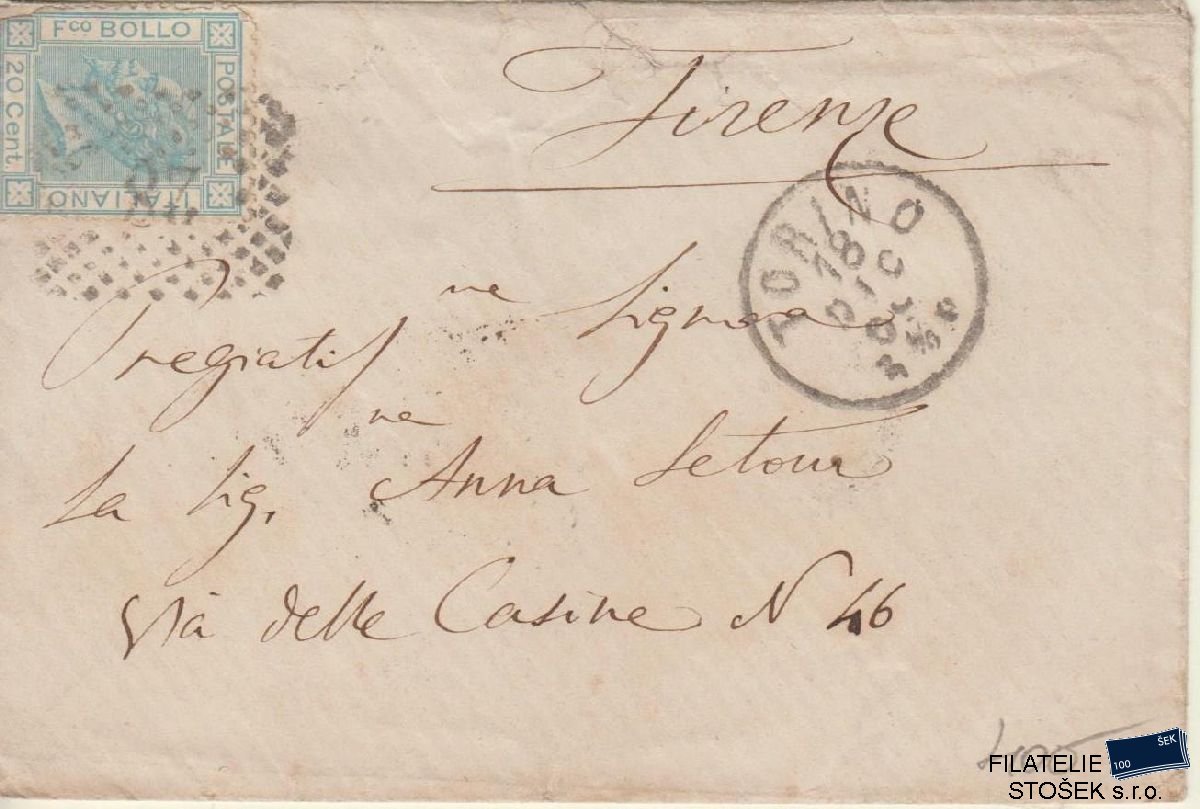 Fco BOLLO
POSTALE
ITALIANO
20 Cent.
Firenze
TORINO
18
DIC
Pregiatis.ma Signora
La Sig.ra Anna Letour
Via delle Casine N 46
FILATELIE
100 ŠEK
STOŠEK s.r.o.